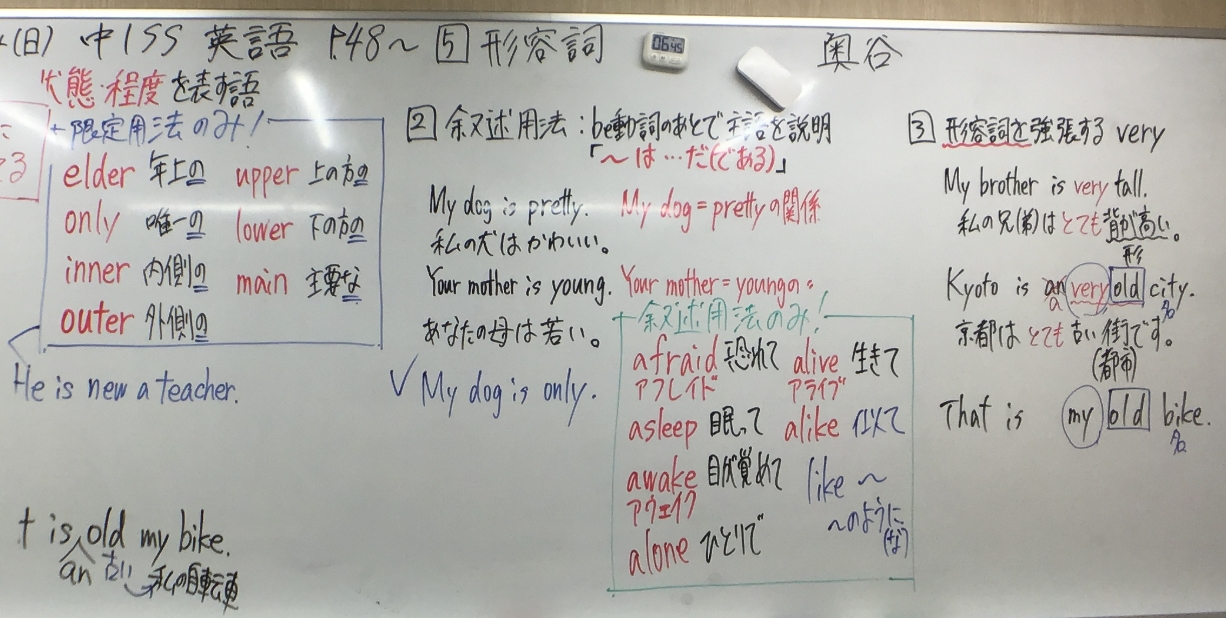 (日) 中1SS 英語 P.48～ 5 形容詞 奥谷
06:45
状態・程度を表す語
限定用法のみ!
elder 年上の upper 上の方の
only 唯一の lower 下の方の
inner 内側の main 主要な
outer 外側の
He is new a teacher.
t is old my bike.
an 古い 私の自転車
2 叙述用法:be動詞のあとで主語を説明
「～は…だ(である)」
My dog is pretty. My dog = prettyの関係
私の犬はかわいい。
Your mother is young. Your mother = youngの
あなたの母は若い。
✓ My dog is only.
叙述用法のみ!
afraid 恐れて alive 生きて
アフレイド アライブ
asleep 眠って alike 似て
awake 目が覚めて like ～
アウェイク ～のように
(な)
alone ひとりで
3 形容詞を強張する very
My brother is very tall.
私の兄(弟)はとても背が高い。
形
Kyoto is an very old city.
a 名
京都は とても 古い 街です。
(都市)
That is my old bike.
名